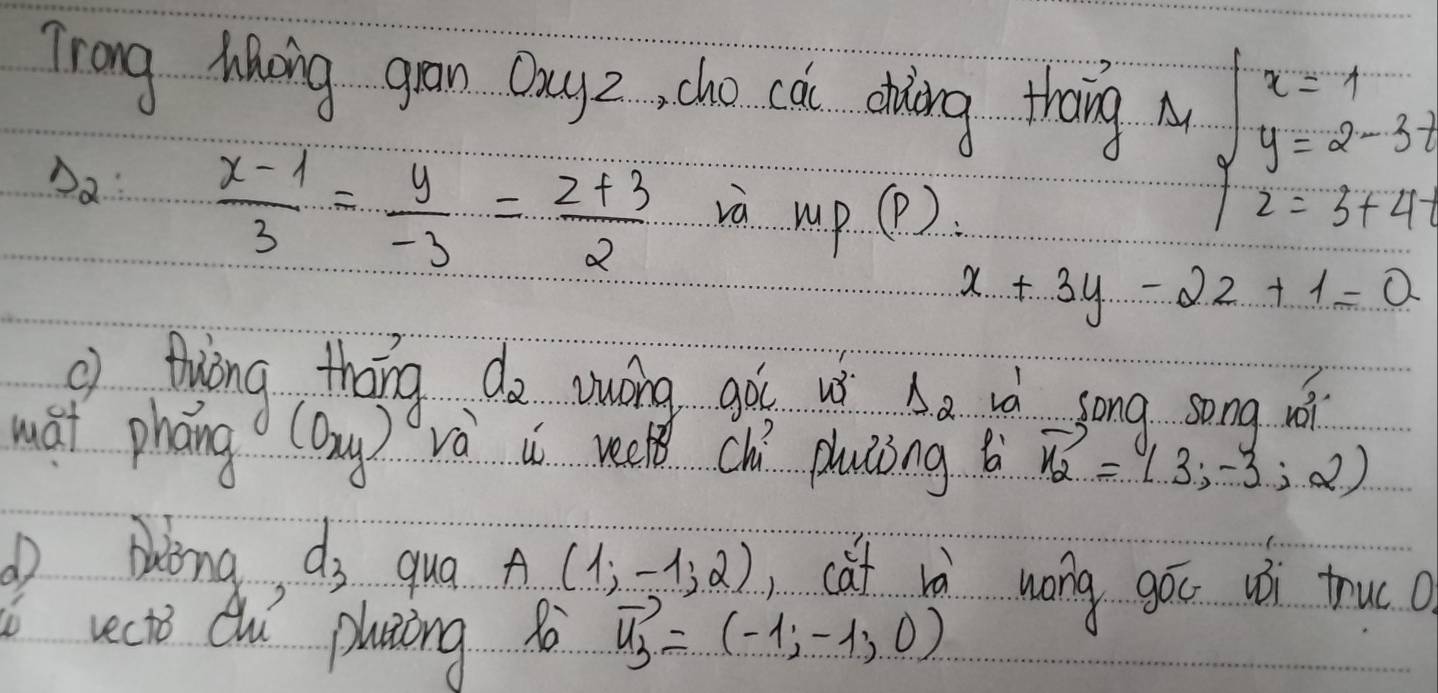 Trong không gian Oxyz, cho các đường thẳng Δ1 { x = 1
y = 2 - 3t
z = 3 + 4t
Δ2: (x - 1)/3 = y/-3 = (z + 3)/2 và mp (P):
x + 3y - 2z + 1 = 0
c) Đường thẳng d2 vuông góc với Δ2 và song song với
mặt phẳng (Oxy) và có vectơ chỉ phương là u2 = (3; -3; 2)
d) Đường d3 qua A (1; -1; 2), cắt và vuông góc với trục O
có vectơ chỉ phương là u3 = (-1; -1; 0)